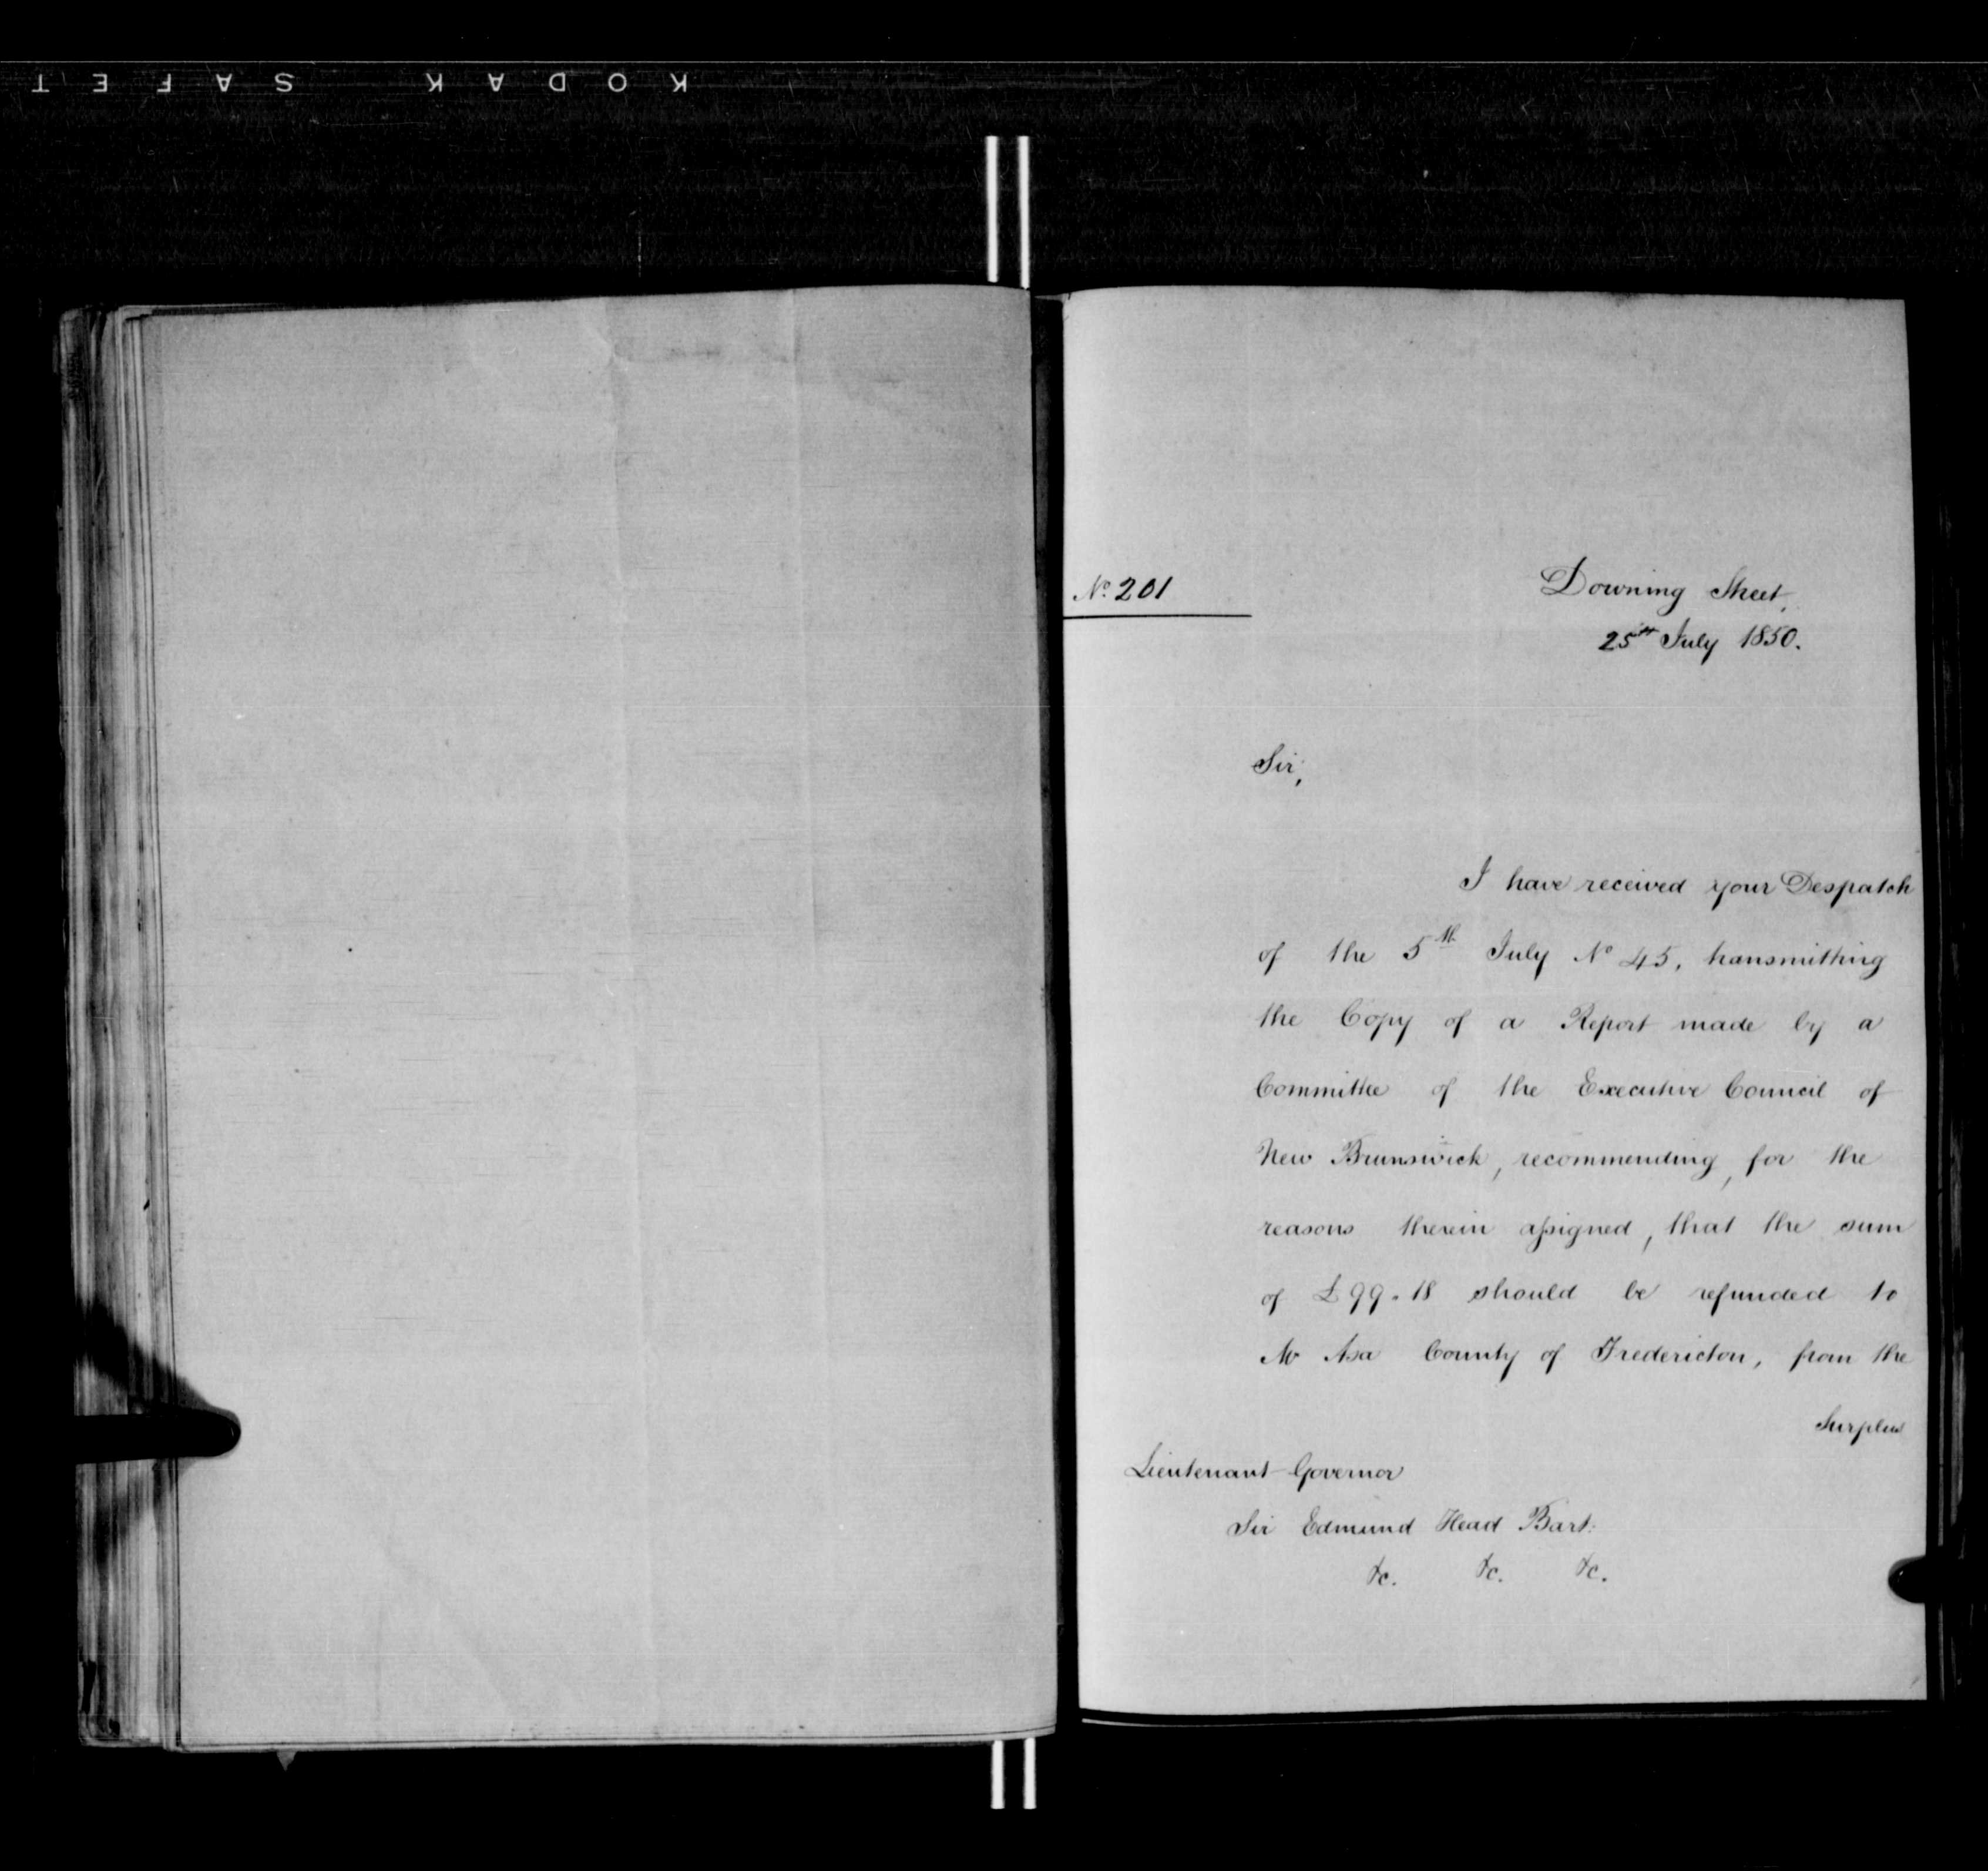 KODAK SAFET
No. 201
Downing Street,
25th July 1850.
Sir,
I have received your Despatch
of the 5th July No 45, transmitting
the Copy of a Report made by a
Committee of the Executive Council of
New Brunswick, recommending, for the
reasons therein assigned, that the sum
of £99.18 should be refunded to
Mr Asa County of Fredericton, from the
Surplus
Lieutenant Governor
Sir Edmund Head Bart:
&c. &c. &c.